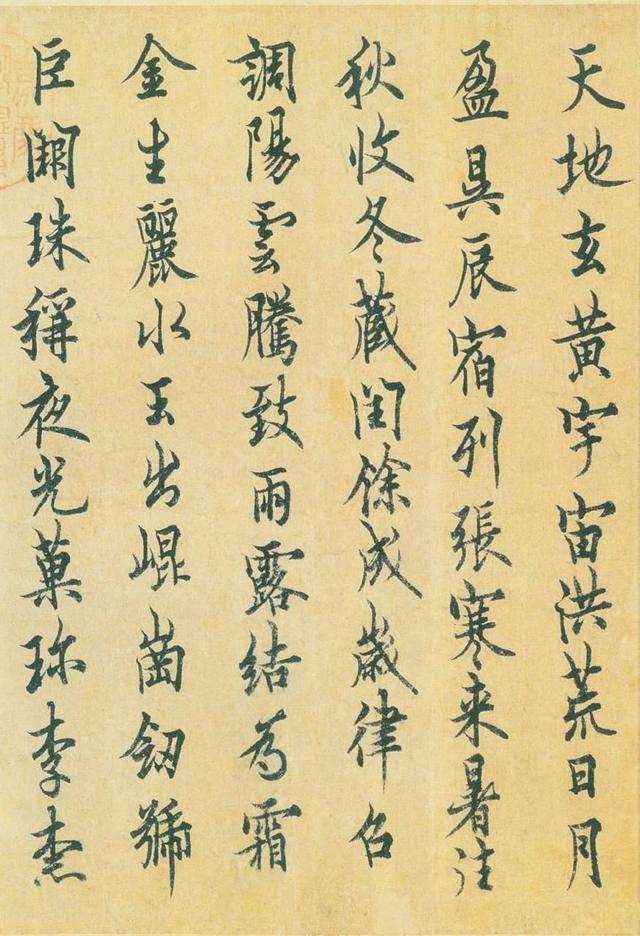 天地玄黃宇宙洪荒日月
盈昃辰宿列張寒来暑往
秋收冬藏閏餘成歲律召
調陽雲騰致雨露結為霜
金生麗水玉出崐崗釰號
巨闕珠稱夜光菓珎李柰